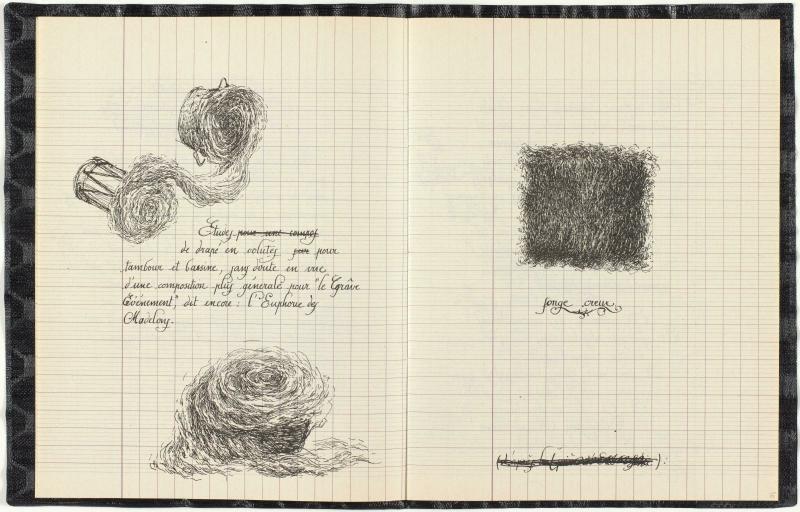 Etudes pour une compos
de drapé en volutes pour pour
tambour et bassine, sans doute en vue
d'une composition plus générale pour "le Grâve
Evénement", dit encore : l'Euphorie des
Madelons.
songe creux
(d'après